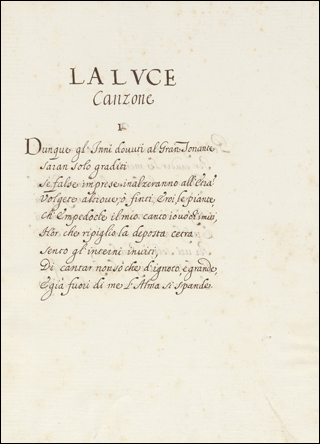 LA LVCE
Canzone
I
Dunque gl'Inni dovuti al Gran Tonante
Saran solo graditi
Se false imprese inalzeranno all'Etra
Volgete altrove, ò finti Eroi, le piante
Ch'Empedocle il mio canto
Hor, che ripiglio la deposta cetra
Sento gl'interni inviti,
Di cantar non sò che d'ignoto, e grande,
E già fuori di me l'Alma si spande.